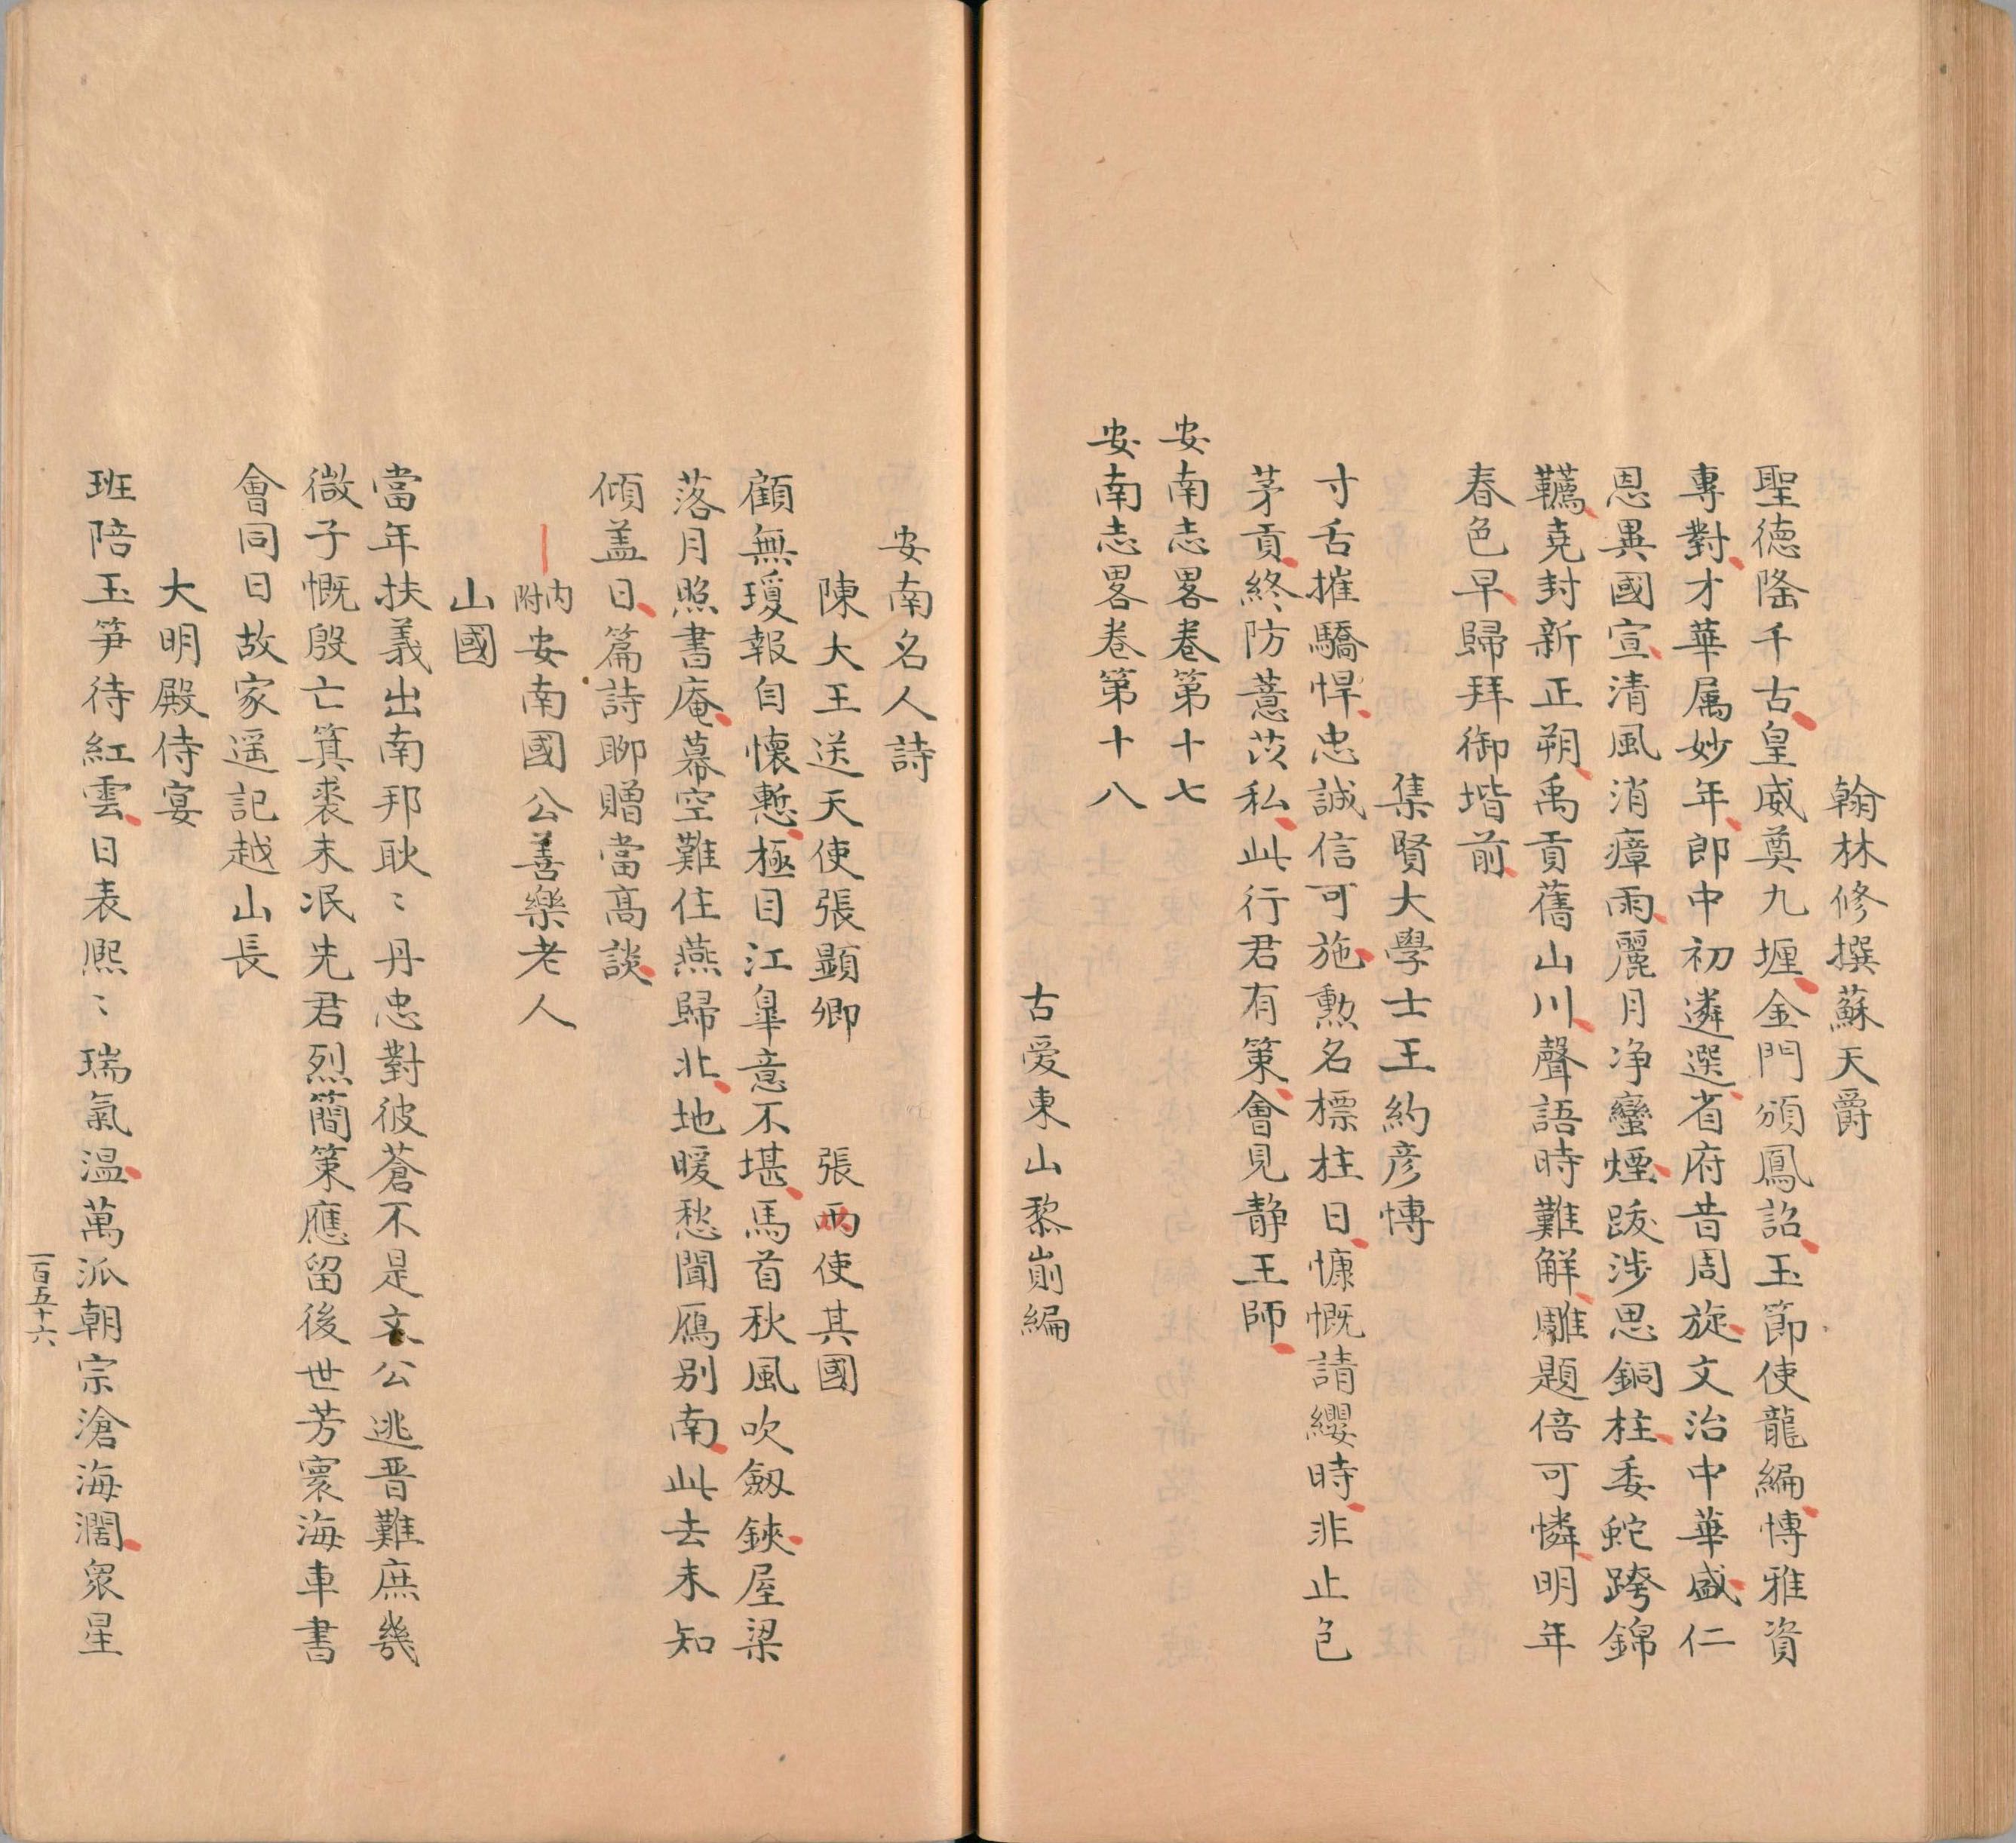 翰林修撰蘇天爵
聖德隆千古皇威奠九堙金門頒鳳詔玉節使龍編愽雅資
專對才華属妙年郎中初遴選省府昔周旋文治中華盛仁
恩異國宣清風消瘴雨麗月净蠻煙跋涉思銅柱委蛇跨錦
韉堯封新正朔禹貢舊山川聲語時難解雕題倍可憐明年
春色早歸拜御堦前
集賢大學士王約彦愽
寸舌摧驕悍忠誠信可施勲名標柱日慷慨請纓時非止包
茅貢終防薏苡私此行君有策會見静王師
安南志畧卷第十七
安南志畧卷第十八
古爱東山黎崱編
安南名人詩
陳大王送天使張顯卿 張兩使其國
顧無瓊報自懷慙極目江臯意不堪馬首秋風吹劔鋏屋梁
落月照書庵幕空難住燕歸北地暖愁聞鴈别南此去未知
傾盖日篇詩聊贈當髙談
内附安南國公善樂老人
山國
當年扶義出南邦耿〻丹忠對彼蒼不是文公逃晋難庶幾
微子慨殷亡箕裘未泯先君烈簡策應留後世芳寰海車書
會同日故家遥記越山長
大明殿侍宴
班陪玉笋待紅雲日表熈〻瑞氣温萬派朝宗滄海濶衆星
一百五十六